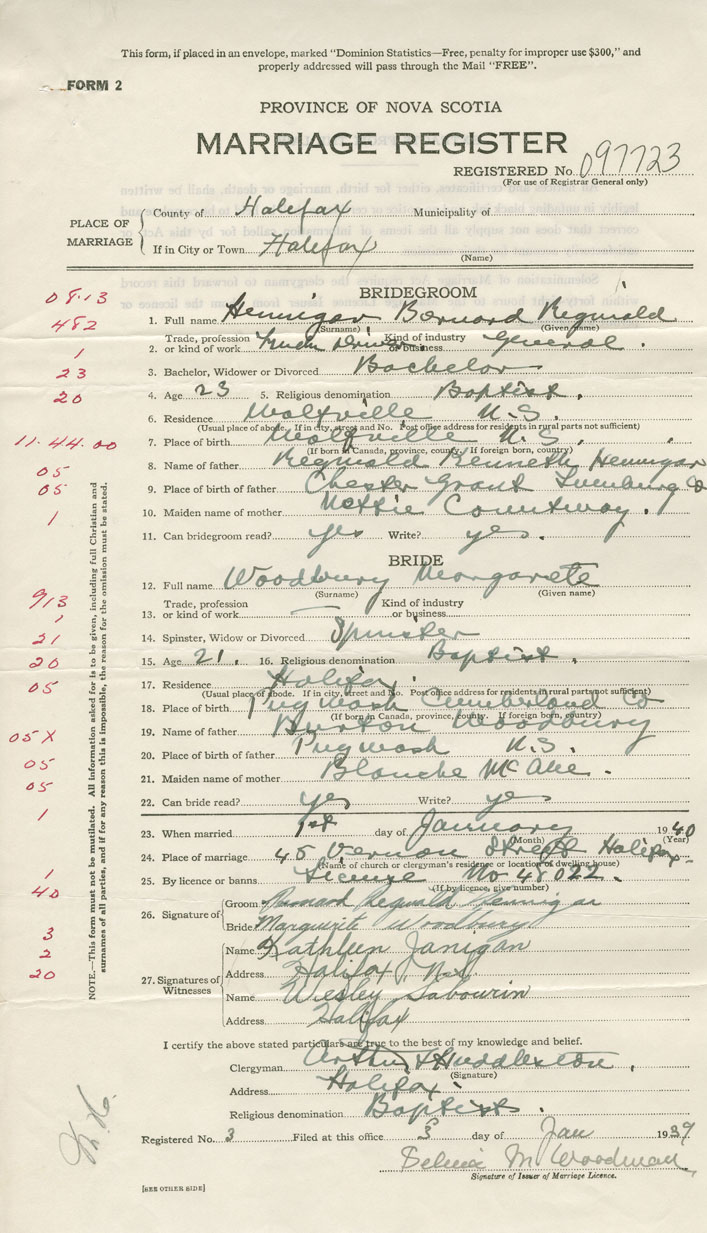 This form, if placed in an envelope, marked "Dominion Statistics—Free, penalty for improper use $300," and
properly addressed will pass through the Mail "FREE".
FORM 2
PROVINCE OF NOVA SCOTIA
MARRIAGE REGISTER
REGISTERED No. 097723
(For use of Registrar General only)
PLACE OF MARRIAGE
County of Halifax Municipality of
If in City or Town Halifax
(Name)
BRIDEGROOM
08.13
1. Full name Hennigar Bernard Reginald
(Surname) (Given name)
482
2. Trade, profession or kind of work Truck Driver Kind of industry or business General.
1
3. Bachelor, Widower or Divorced Bachelor
23
4. Age 23 5. Religious denomination Baptist.
20
6. Residence Wolfville N.S.
(Usual place of abode. If in city, street and No. Post office address for residents in rural parts not sufficient)
11.44.00
7. Place of birth Wolfville N.S.
(If born in Canada, province, county. If foreign born, country)
05
8. Name of father Reginald Kenneth Hennigar
05
9. Place of birth of father Chester Grant Lunenburg Co
1
10. Maiden name of mother Nettie Countway.
11. Can bridegroom read? yes Write? yes.
BRIDE
12. Full name Woodbury Margarete
(Surname) (Given name)
913
13. Trade, profession or kind of work — Kind of industry or business
21
14. Spinster, Widow or Divorced Spinster
20
15. Age 21. 16. Religious denomination Baptist.
05
17. Residence Halifax.
(Usual place of abode. If in city, street and No. Post office address for residents in rural parts not sufficient)
18. Place of birth Pugwash Cumberland Co
(If born in Canada, province, county. If foreign born, country)
05X
19. Name of father Burton Woodbury
05
20. Place of birth of father Pugwash N.S.
05
21. Maiden name of mother Blanche McAlee.
1
22. Can bride read? yes Write? yes
23. When married 1st day of January 1940
(Month) (Year)
24. Place of marriage 45 Vernon Street Halifax
(Name of church or clergyman's residence or location of dwelling house)
1
25. By licence or banns License No 48022.
(If by licence, give number)
40
26. Signature of
Groom Bernard Reginald Hennigar
3
Bride Marguerite Woodbury
2
27. Signatures of Witnesses
Name Kathleen Janigan
20
Address Halifax N.S.
Name Wesley Sabourin
Address Halifax
I certify the above stated particulars are true to the best of my knowledge and belief.
Clergyman Arthur Huddleston.
(Signature)
Address Halifax.
Religious denomination Baptist.
Registered No. 3 Filed at this office 3 day of Jan 1939
M. Woodman
Signature of Issuer of Marriage Licence.
[SEE OTHER SIDE]
NOTE.—This form must not be mutilated. All information asked for is to be given, including full Christian and
surnames of all parties, and if for any reason this is impossible, the reason for the omission must be stated.